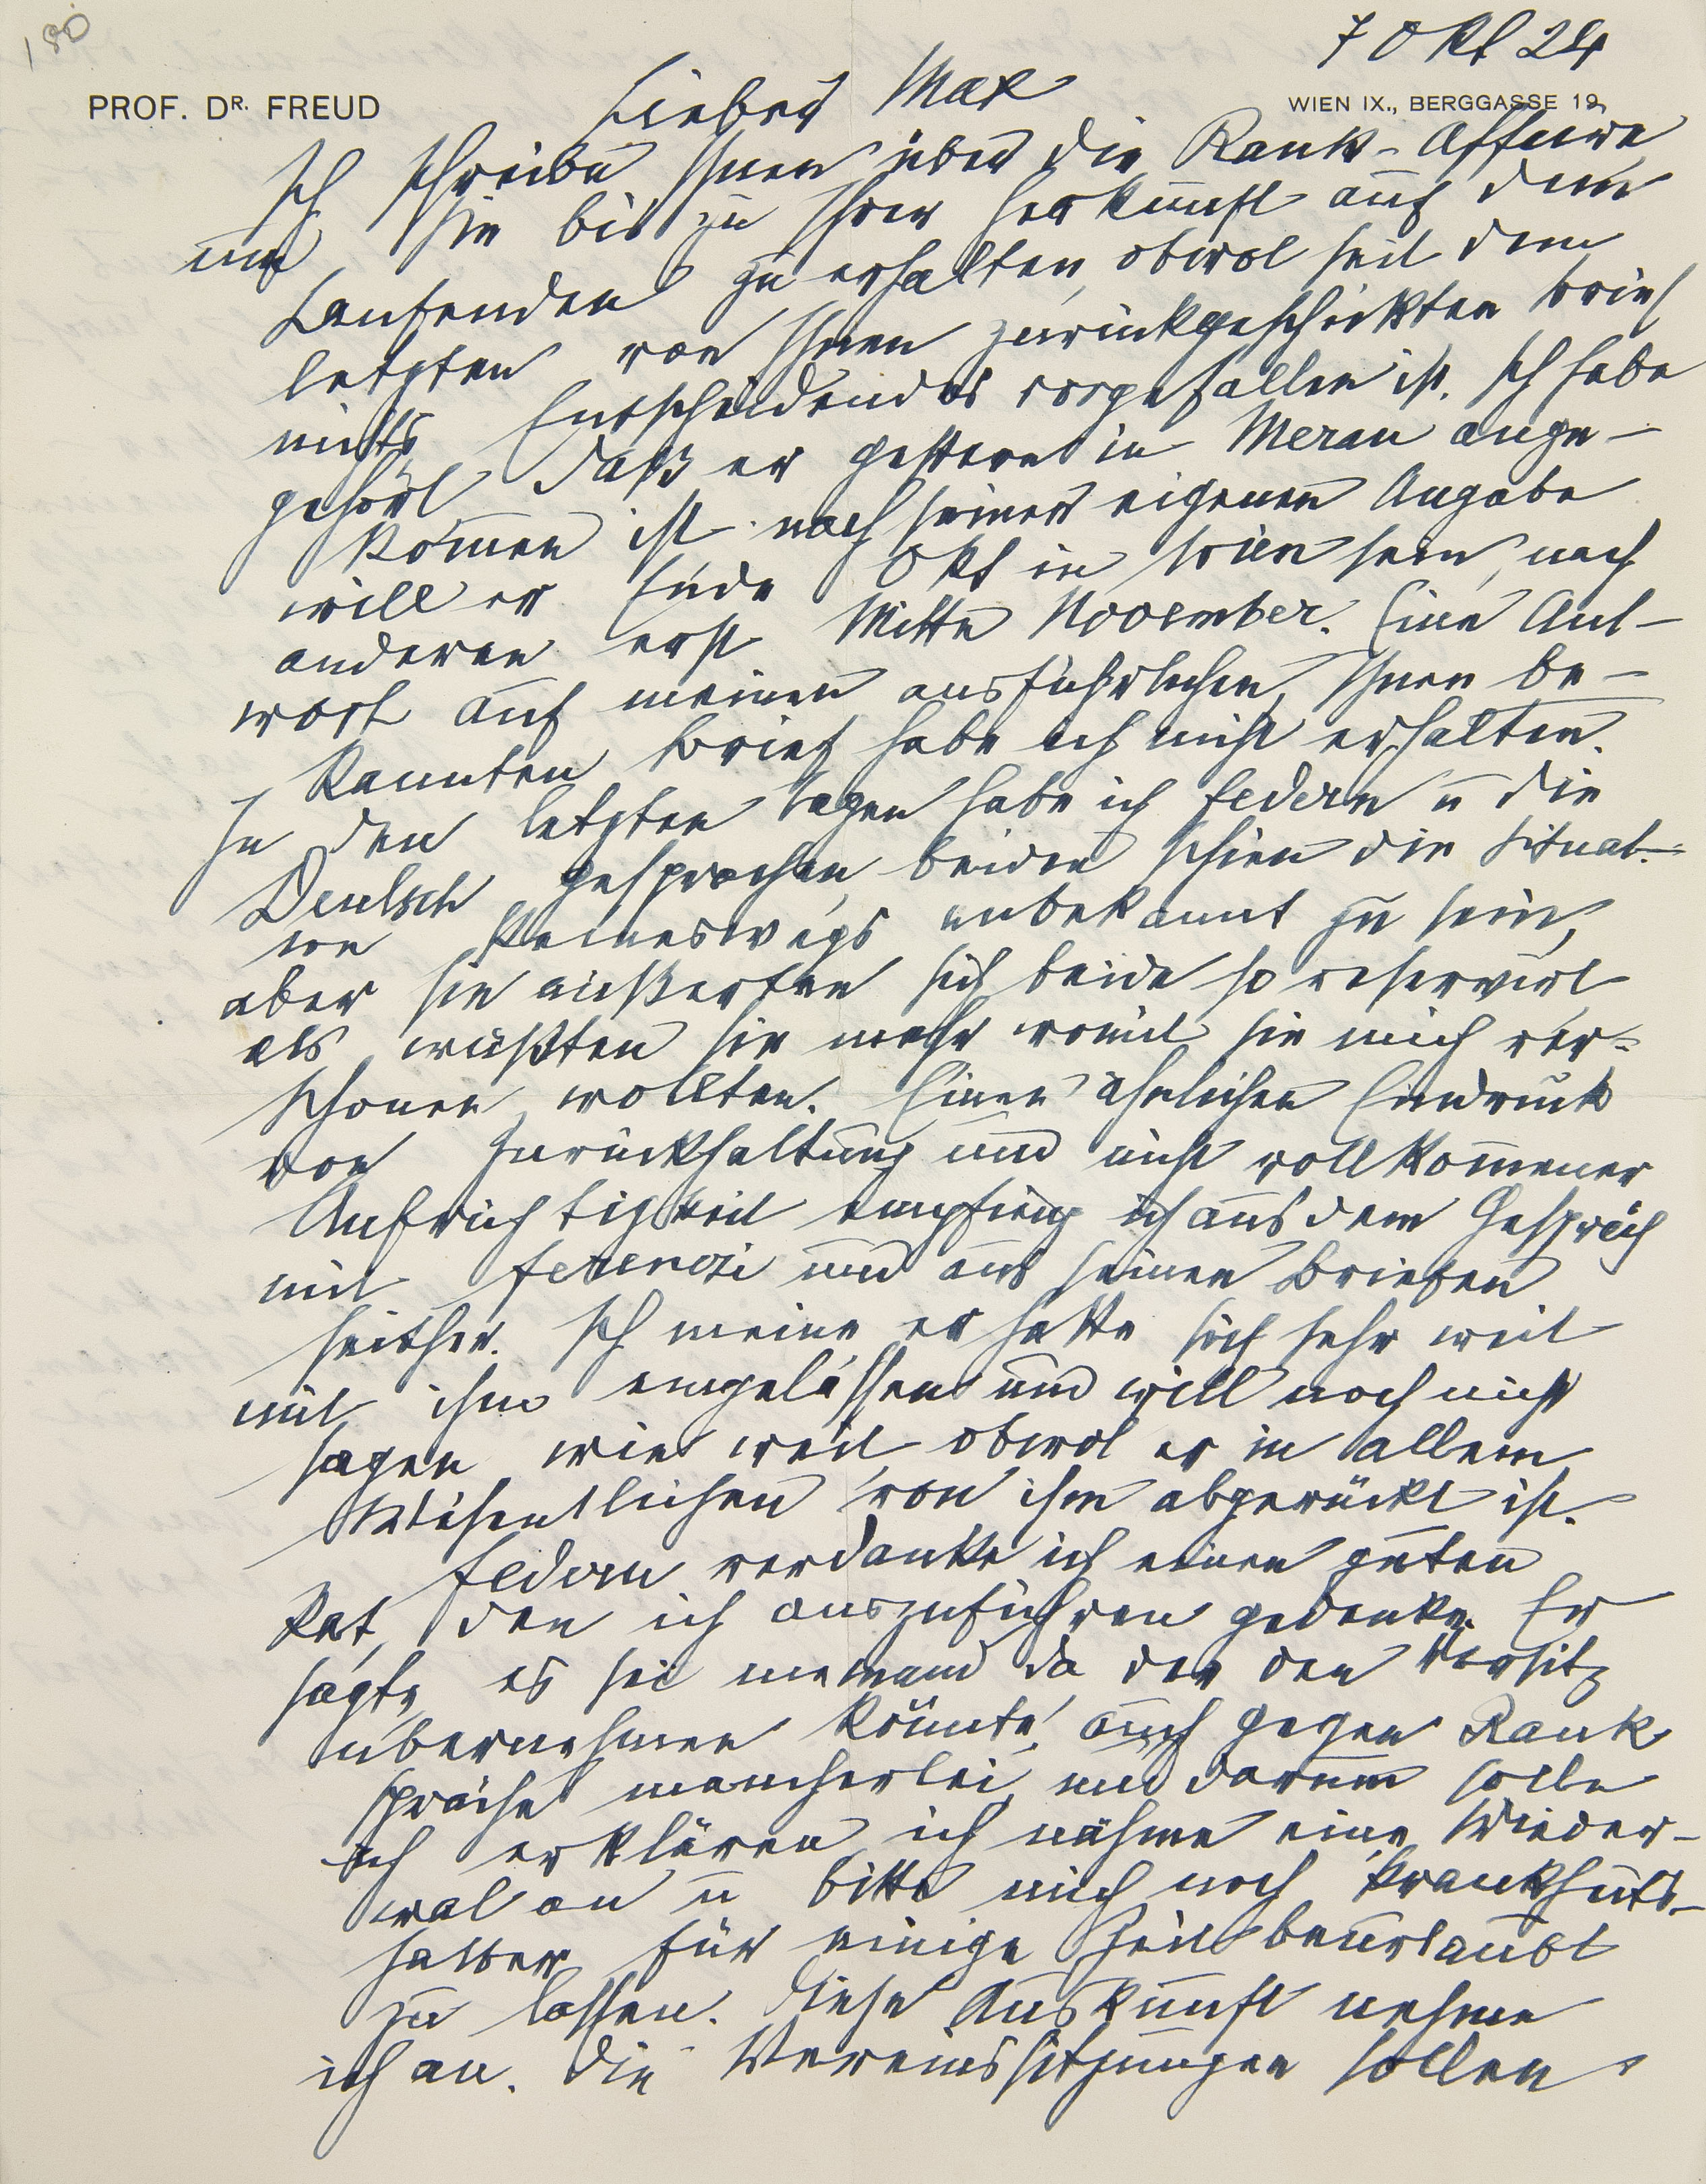 180
7 Okt 24
PROF. DR. FREUD
WIEN IX., BERGGASSE 19.
Lieber Max
Ich schreibe Ihnen über die Rank-Affaire
um Sie bis zu Ihrer Herkunft auf dem
Laufenden zu erhalten, obwol seit dem
letzten von Ihnen zurückgeschickten Brief
nichts Entscheidendes vorgefallen ist. Ich habe
gehört daß er gestern in Meran ange-
kom̄en ist. nach seiner eigenen Angabe
will er Ende Okt in Wien sein, nach
anderen erst Mitte November. Eine Ant-
wort auf meinen ausführlichen, Ihnen be-
kannten Brief habe ich nicht erhalten.
In den letzten Tagen habe ich Federn u die
Deutsch gesprochen, beiden schien die Situat-
ion keineswegs unbekannt zu sein,
aber sie äußerten sich beide so reservirt
als wüßten sie mehr womit sie mich ver-
schonen wollten. Einen ähnlichen Eindruck
von Zurückhaltung und nicht vollkom̄ener
Aufrichtigkeit empfing ich aus dem Gespräch
mit Ferenczi und aus seinen Briefen
seither. Ich meine er hatte sich sehr weit
mit ihm eingelassen und will noch nicht
sagen wie weit, obwol er in allem
Wesentlichen von ihm abgerückt ist.
Federn verdanke ich einen guten
Rat, den ich auszuführen gedenke. Er
sagte, es sei niemand da der den Vorsitz
übernehmen könnte, auch gegen Rank
spräche mancherlei, und darum solle
ich erklären, ich nähme eine Wieder-
wal an u bitte mich noch krankheits-
halber für einige Zeit beurlaubt
zu lassen. Diese Auskunft nehme
ich an. Die Vereinssitzungen sollen